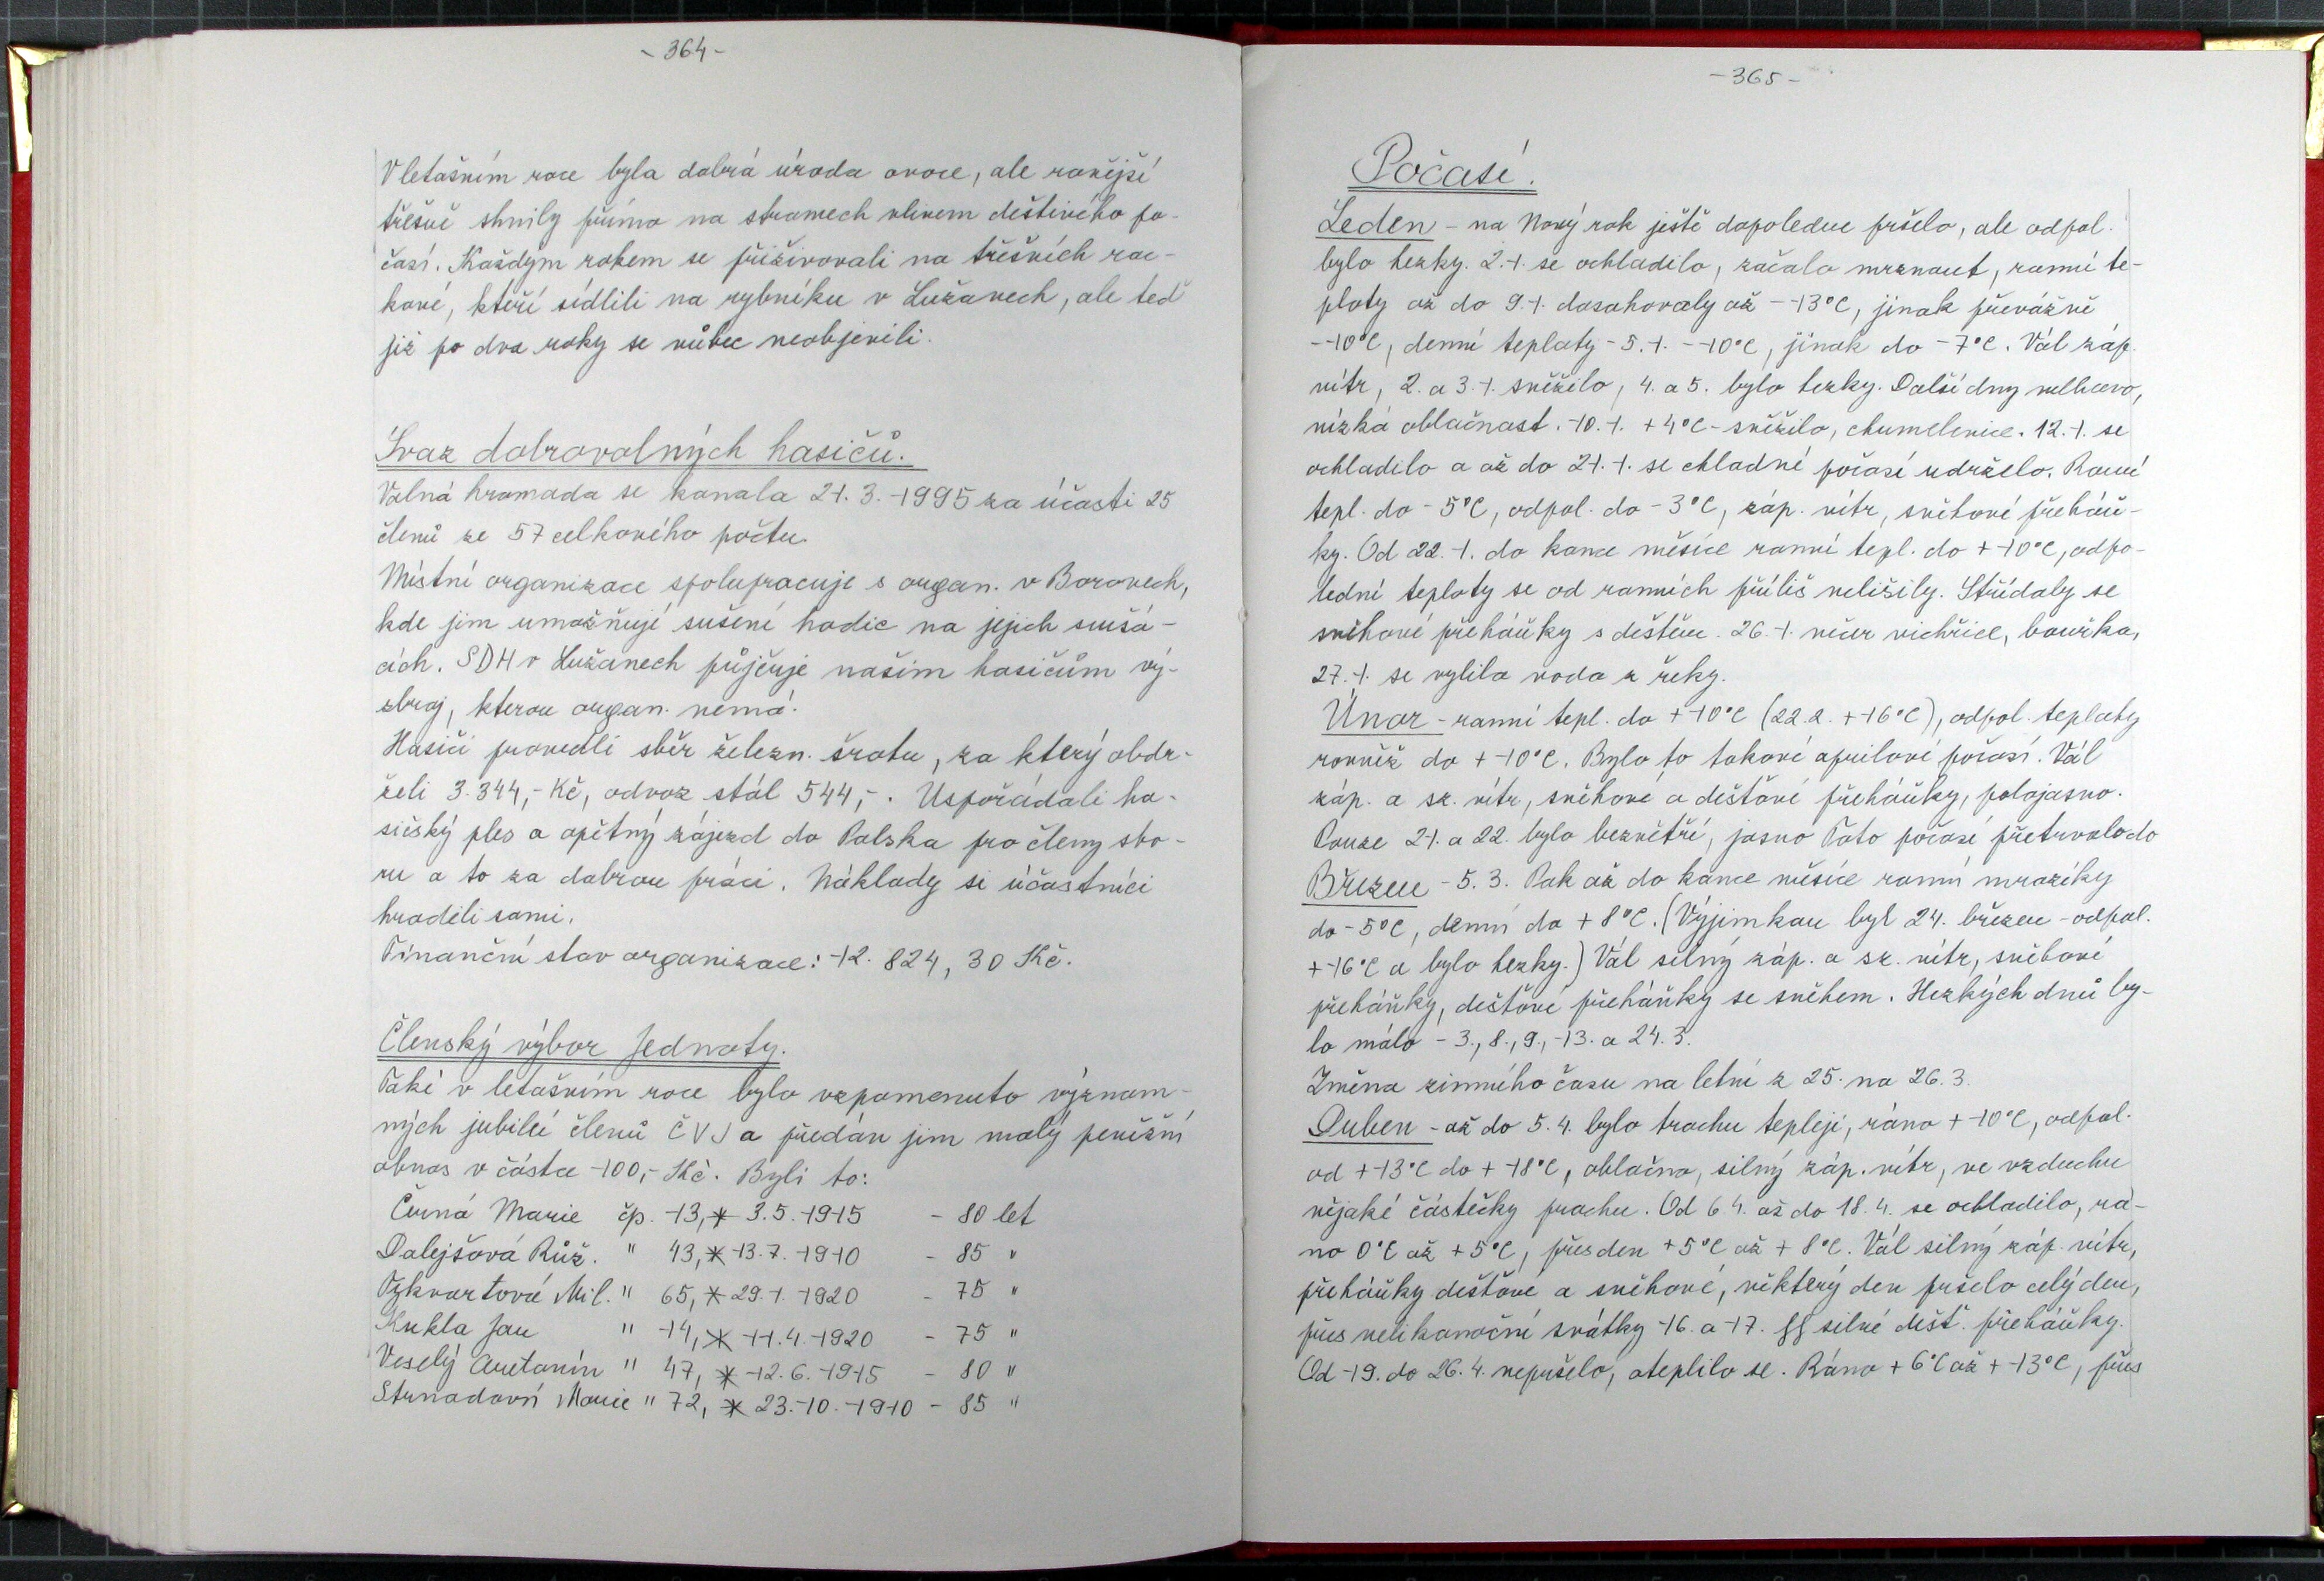 - 364 -
V letašním roce byla dobrá úroda ovoce, ale ranější
třešně shnily přímo na stromech vlivem deštivého po-
časí. Každým rokem se přiživovali na třešních rac-
kové, kteří sídlili na rybníku v Lužanech, ale teď
již po dva roky se vůbec neobjevili.
Svaz dobrovolných hasičů.
Valná hromada se konala 21. 3. 1995 za účasti 25
členů ze 57 celkového počtu.
Místní organizace spolupracuje s organ. v Borovech,
kde jim umožňují sušení hadic na jejich sušá-
cích. SDH v Lužanech půjčuje našim hasičům vý-
zbroj, kterou organ. nemá.
Hasiči provedli sběr železn. šrotu, za který obdr-
želi 3.344,- Kč, odvoz stál 544,-. Uspořádali ha-
sičský ples a opětný zájezd do Polska pro členy sbo-
ru a to za dobrou práci. Náklady si účastníci
hradili sami.
Finanční stav organizace: 12. 824, 30 Kč.
Členský výbor Jednoty.
Také v letašním roce bylo vzpomenuto význam-
ných jubileí členů ČVJ a předán jim malý peněžní
obnos v částce 100,- Kč. Byli to:
Černá Marie čp. 13, * 3.5.1915 - 80 let
Dalejšová Růž. " 43, * 13.7.1910 - 85 "
Tykvartová Mil. " 65, * 29.1.1920 - 75 "
Kukla Jan " 14, * 11.4.1920 - 75 "
Veselý Antonín " 47, * 12.6.1915 - 80 "
Strnadová Marie " 72, * 23.10.1910 - 85 "
- 365 -
Počasí.
Leden - na Nový rok ještě dopoledne pršelo, ale odpol.
bylo hezky. 2.1. se ochladilo, začalo mrznout, ranní te-
ploty až do 9.1. dosahovaly až -13°C, jinak převážně
-10°C, denní teploty - 5.1. -10°C, jinak do -7°C. Vál záp.
vítr, 2. a 3.1. sněžilo, 4. a 5. bylo hezky. Další dny mlhavo,
nízká oblačnost. 10.1. +4°C - sněžilo, chumelenice. 12.1. se
ochladilo a až do 21.1. se chladné počasí udrželo. Ranní
tepl. do -5°C, odpol. do -3°C, záp. vítr, sněhové přeháň-
ky. Od 22.1. do konce měsíce ranní tepl. do +10°C, odpo-
lední teploty se od ranních příliš nelišily. Střídaly se
sněhové přeháňky s deštěm. 26.1. večer vichřice, bouřka,
27.1. se vylila voda z řeky.
Únor - ranní tepl. do +10°C (22.2. +16°C), odpol. teploty
rovněž do +10°C. Bylo to takové aprilové počasí. Vál
záp. a sz. vítr, sněhové a dešťové přeháňky, polojasno.
Pouze 21. a 22. bylo bezvětří, jasno Toto počasí přetrvalo do
Březen - 5. 3. Pak až do konce měsíce ranní mrazíky
do -5°C, denní do +8°C. (Výjimkou byl 24. březen - odpol.
+16°C a bylo hezky.) Vál silný záp. a sz. vítr, sněhové
přeháňky, dešťové přeháňky se sněhem. Hezkých dnů by-
lo málo - 3., 8., 9., 13. a 24.3.
Změna zimního času na letní z 25. na 26.3.
Duben - až do 5.4. bylo trochu tepleji, ráno +10°C, odpol.
od +13°C do +18°C, oblačno, silný záp. vítr, ve vzduchu
nějaké částečky prachu. Od 6 4. až do 18.4. se ochladilo, rá-
no 0°C až +5°C, přes den +5°C až +8°C. Vál silný záp. vítr,
přeháňky dešťové a sněhové, některý den pršelo celý den,
přes velikonoční svátky 16. a 17. §§ silné dešť. přeháňky.
Od 19. do 26.4. nepršelo, oteplilo se. Ráno +6°C až +13°C, přes